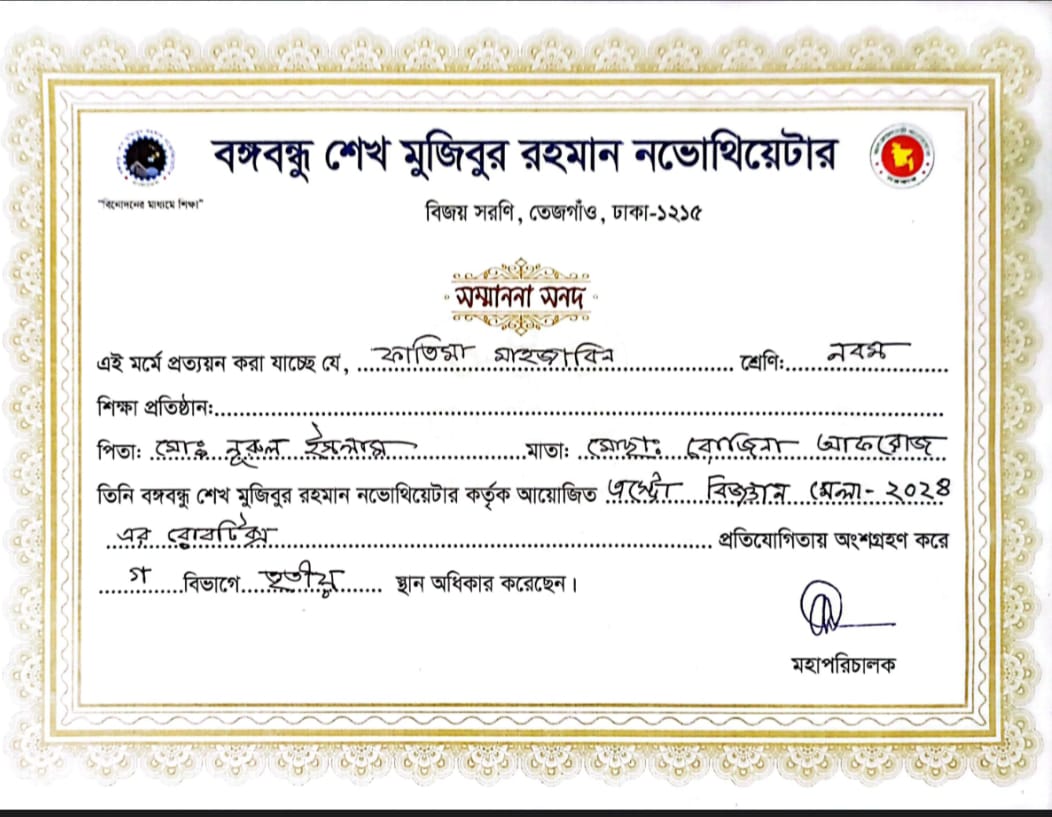 বঙ্গবন্ধু শেখ মুজিবুর রহমান নভোথিয়েটার
"বিনোদনের মাধ্যমে শিক্ষা"
বিজয় সরণি, তেজগাঁও, ঢাকা-১২১৫
সম্মাননা সনদ
এই মর্মে প্রত্যয়ন করা যাচ্ছে যে, ফাতিমা মাহজাবিন শ্রেণি: নবম
শিক্ষা প্রতিষ্ঠান:
পিতা: মোঃ নূরুল ইসলাম মাতা: মোছাঃ রোজিনা আফরোজ
তিনি বঙ্গবন্ধু শেখ মুজিবুর রহমান নভোথিয়েটার কর্তৃক আয়োজিত এস্ট্রো বিজ্ঞান মেলা- ২০২৪
এর রোবটিক্স প্রতিযোগিতায় অংশগ্রহণ করে
গ বিভাগে তৃতীয় স্থান অধিকার করেছেন।
মহাপরিচালক